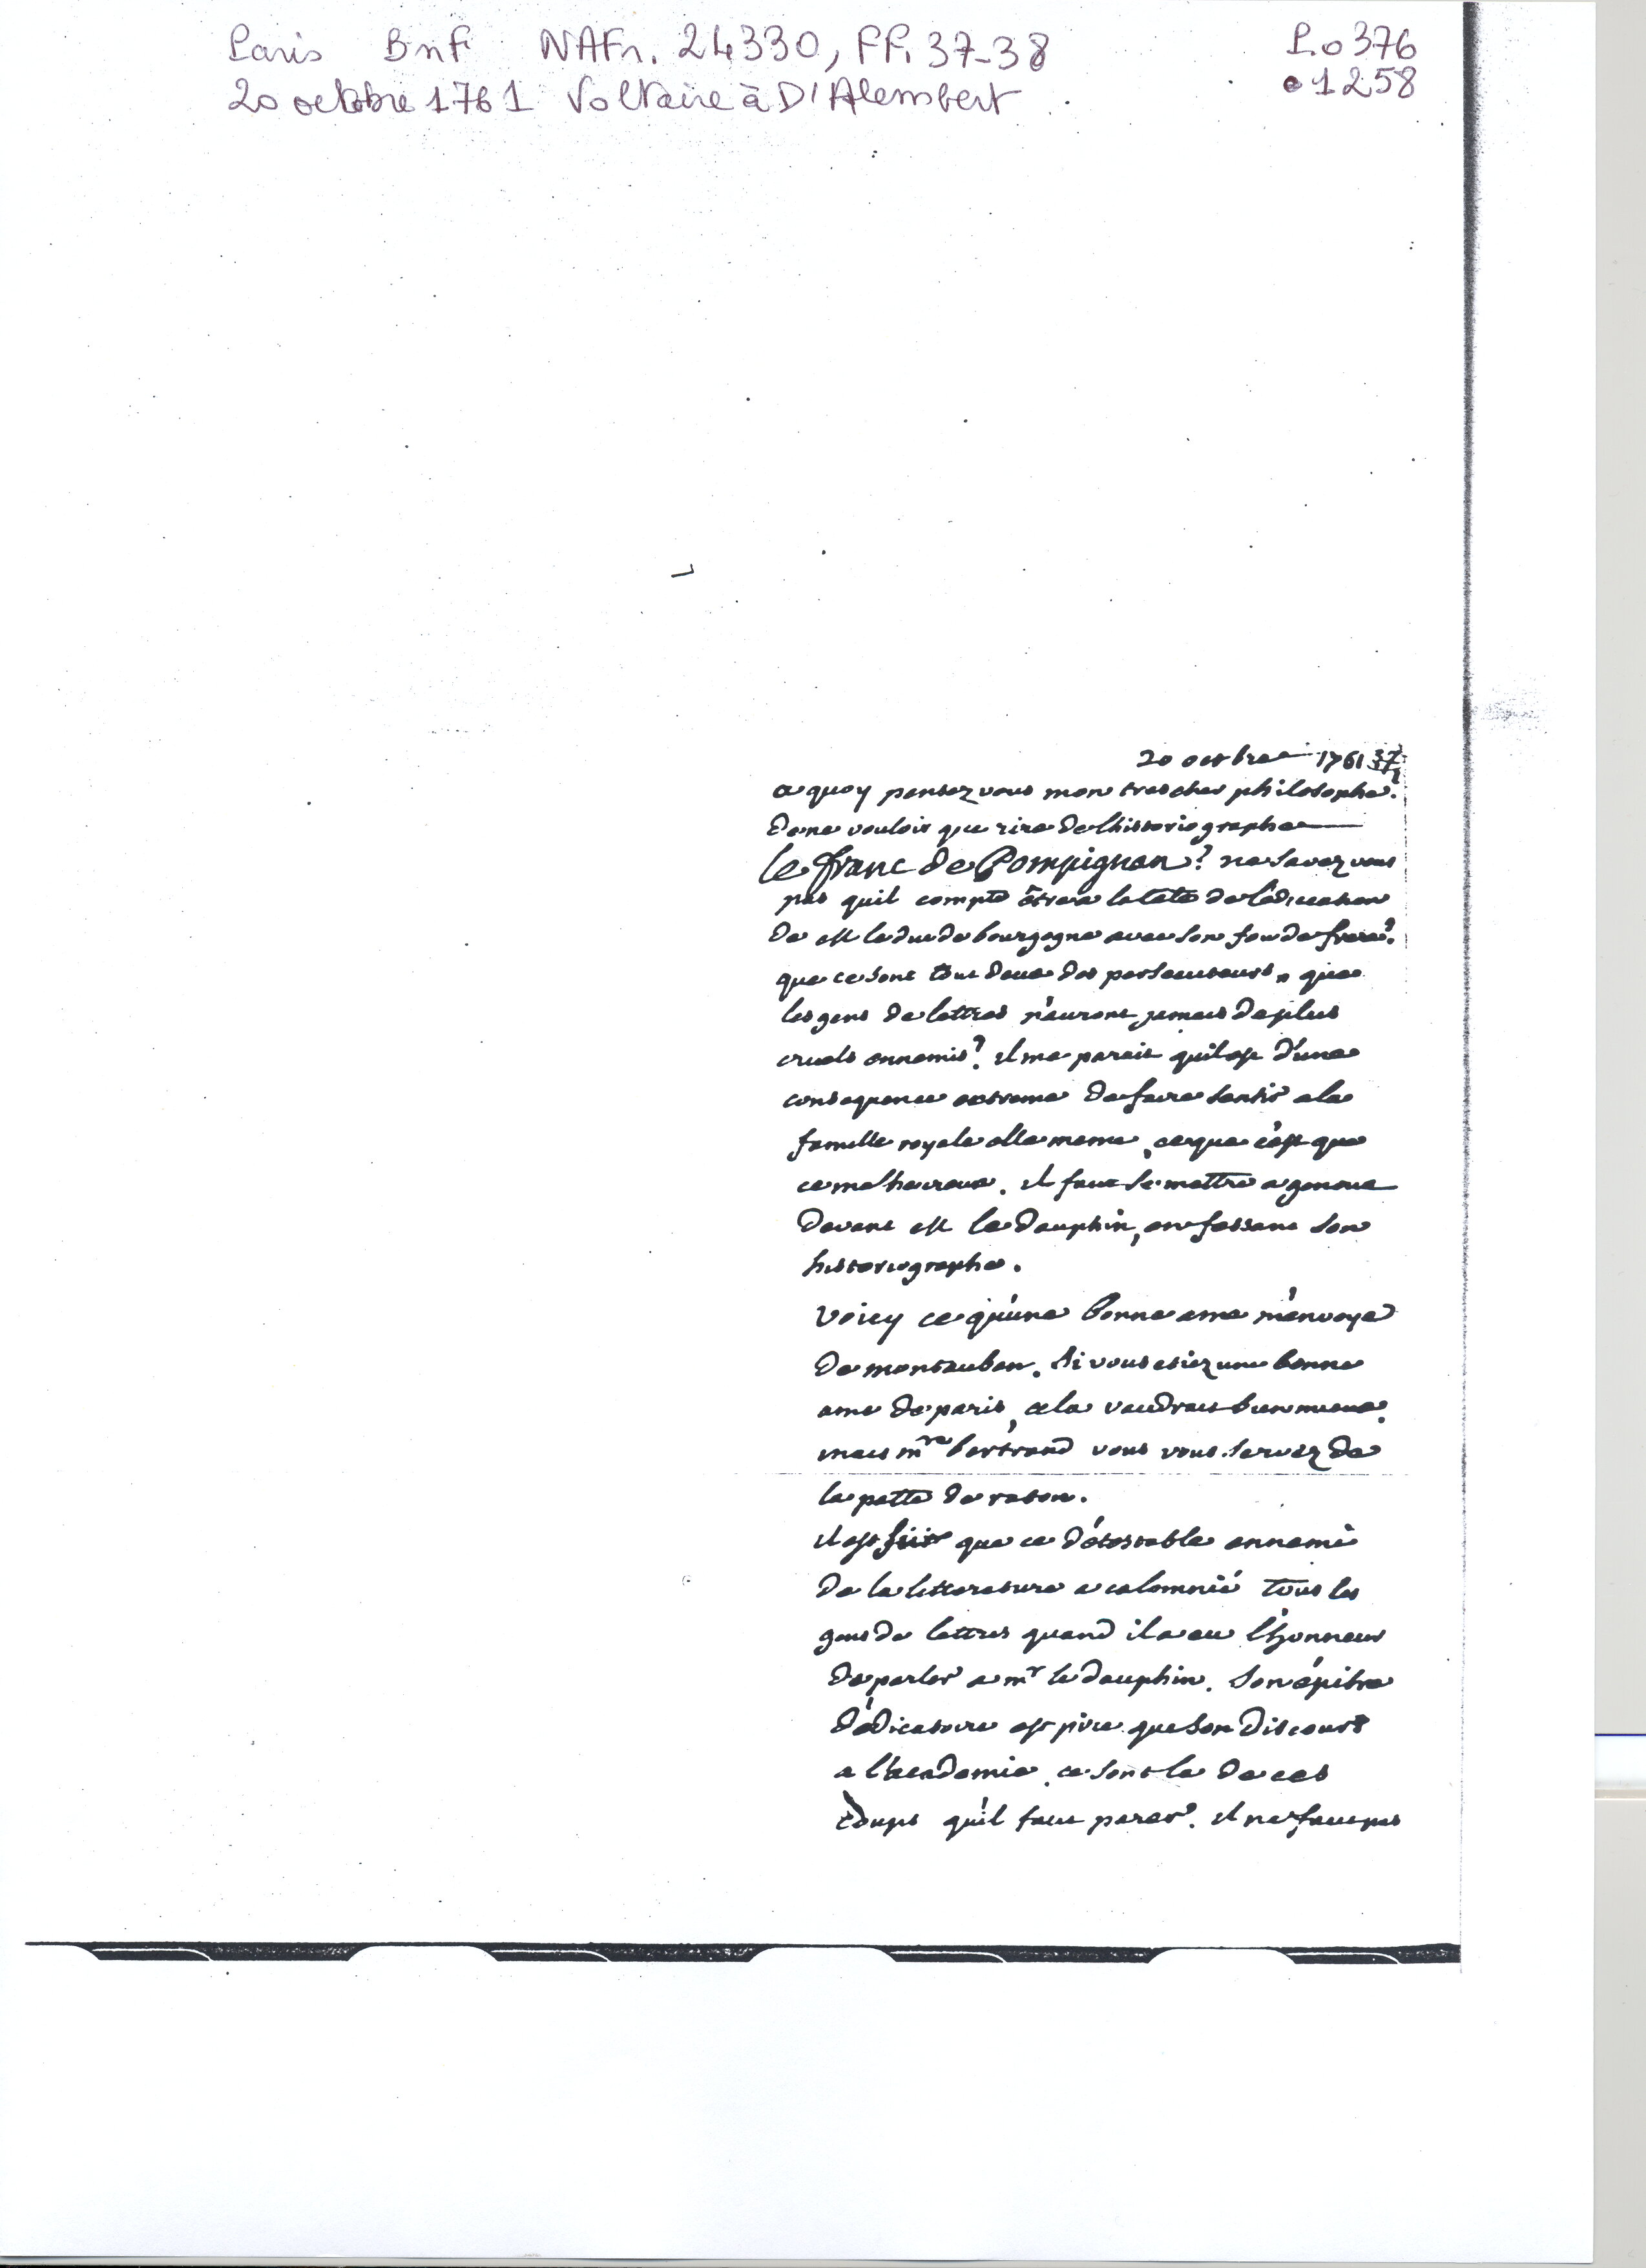 Paris BnF NAFr. 24330, ff. 37-38
P.0376
20 octobre 1761 Voltaire à D'Alembert
1258
20 octbre 1761 37
a quoy pensez vous mon tres cher philosophe.
de ne vouloir que rire de lhistoriographe
le franc de Pompignan? ne savez vous
pas quil compte être a la tête de léducation
de mr le duc de bourgogne avec son fou de frere?
que ce sont tous deux des persecuteurs, que
les gens de lettres n'auront jamais de plus
cruels ennemis? il me parait quil est d'une
consequence extreme de faire sentir a la
famille royale elle meme, ce que c'est que
ce malheureux. il faut se mettre a genoux
devant mr le dauphin, en fessant son
historiographe.
Voicy ce qu'une bonne ame m'envoye
de montauban. si vous etiez une bonne
ame de paris, cela vaudrait bien mieux.
mais mre bertrand vous vous servez de
la patte de raton.
il est sûr que ce détestable ennemi
de la litterature a calomnié tous les
gens de lettres quand il a eu l'honneur
de parler a mr le dauphin. son épitre
dédicatoire est pire que son discours
a l'academie. ce sont la de ces
coups qu'il faut parer. il ne faut pas